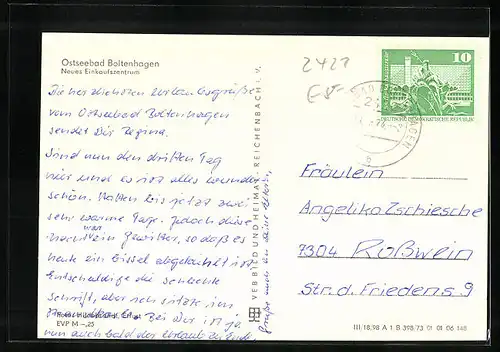 Ostseebad Boltenhagen
Neues Einkaufszentrum
Die herzlichsten Urlaubsgrüße
vom Ostseebad Boltenhagen
sendet Dir Regina.
Sind nun den dritten Tag
hier und es ist alles wunder-
schön. Hatten bis jetzt zwei
sehr warme Tage, jedoch diese
Nacht war ein Gewitter, so daß es
heute ein bissel abgekühlt ist.
Entschuldige die schlechte
Schrift, aber ich sitze im
Strandkorb. Bei Dir ist ja
nun auch bald der Urlaub zu Ende.
grüße mir Deine Eltern.
EVP M –,25
VEB BILD UND HEIMAT REICHENBACH i. V.
2427
10
DEUTSCHE DEMOKRATISCHE REPUBLIK
Fräulein
Angelika Zschiesche
7304 Roßwein
Str. d. Friedens 9
III/18/98 A 1 B 398/73 01 01 06 148